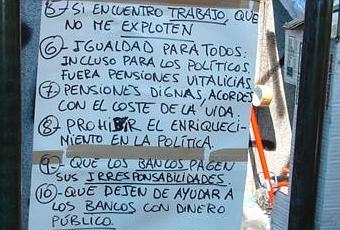 5- SI ENCUENTRO TRABAJO, QUE
NO ME EXPLOTEN
6- IGUALDAD PARA TODOS:
INCLUSO PARA LOS POLÍTICOS.
FUERA PENSIONES VITALICIAS
7- PENSIONES DIGNAS, ACORDES
CON EL COSTE DE LA VIDA.
8- PROHIBIR EL ENRIQUECI-
MIENTO EN LA POLÍTICA.
9- QUE LOS BANCOS PAGEN
SUS IRRESPONSABILIDADES.
10- QUE DEJEN DE AYUDAR A
LOS BANCOS CON DINERO
PÚBLICO.